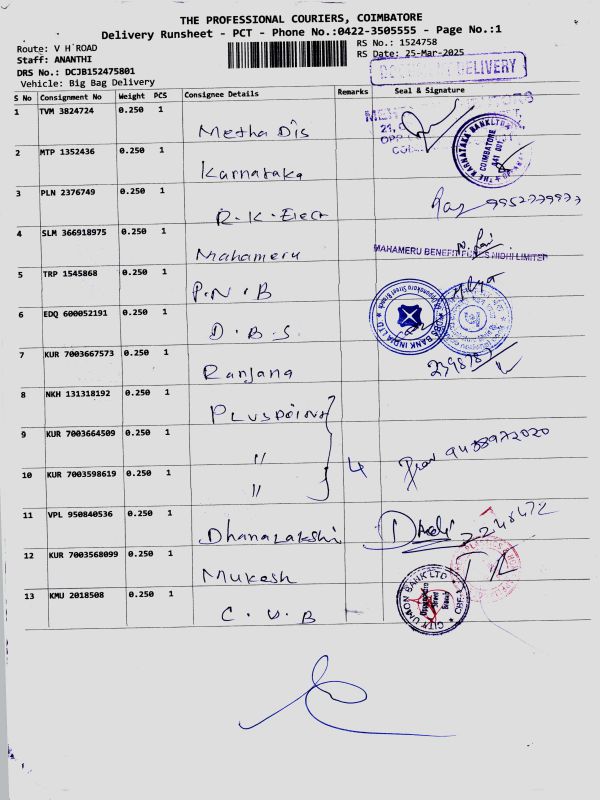 THE PROFESSIONAL COURIERS, COIMBATORE
Delivery Runsheet - PCT - Phone No.:0422-3505555 - Page No.:1
Route: V H ROAD
RS No.: 1524758
Staff: ANANTHI
RS Date: 25-Mar-2025
DRS No.: DCJB152475801
DELIVERY
Vehicle: Big Bag Delivery
S No Consignment No Weight PCS Consignee Details Remarks Seal & Signature
1 TVM 3824724 0.250 1 Metha Dis
2 MTP 1352436 0.250 1 Karnataka
THE KARNATAKA BANK LTD COIMBATORE
3 PLN 2376749 0.250 1 R.K.Elect 9952779977
4 SLM 366918975 0.250 1 Mahameru
MAHAMERU BENEFIT FUNDS NIDHI LIMITED
5 TRP 1545868 0.250 1 P.N.B
6 EDQ 600052191 0.250 1 D.B.S.
DBS BANK INDIA LTD
7 KUR 7003667573 0.250 1 Ranjana
8 NKH 131318192 0.250 1 PLUSPOINT
9 KUR 7003664509 0.250 1 " 4
10 KUR 7003598619 0.250 1 "
11 VPL 950840536 0.250 1 Dhanalakshi
12 KUR 7003568099 0.250 1 Mukesh
13 KMU 2018508 0.250 1 C.U.B
CITY UNION BANK LTD